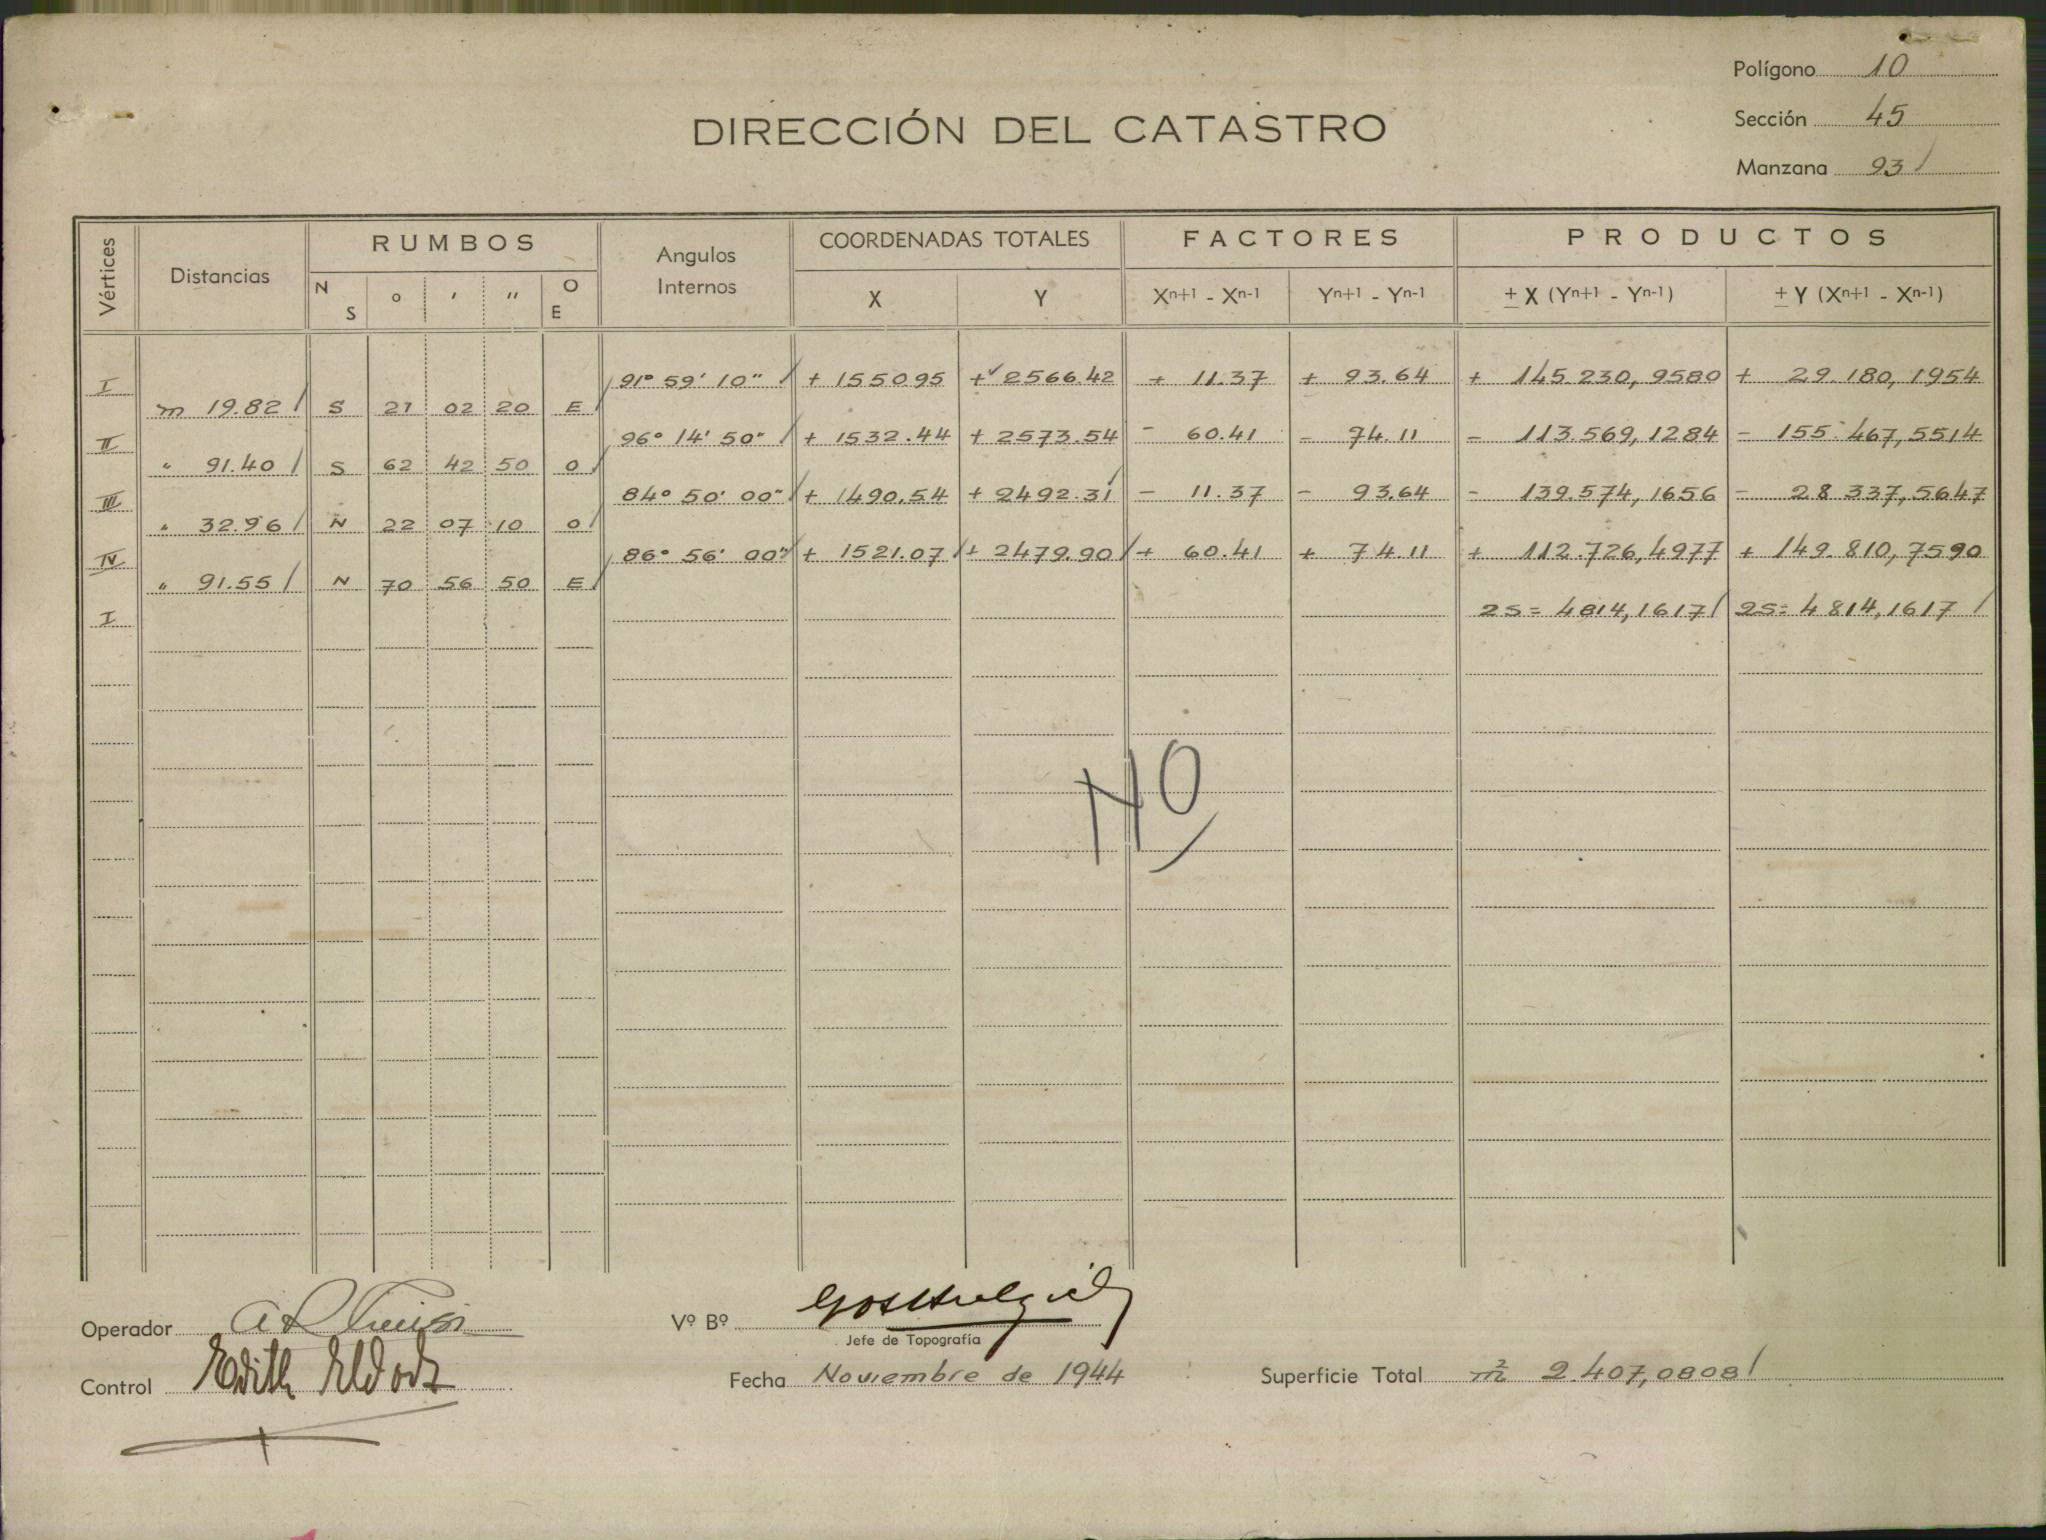 Polígono 10
DIRECCIÓN DEL CATASTRO
Sección 45
Manzana 93
Vértices Distancias RUMBOS Angulos Internos COORDENADAS TOTALES FACTORES PRODUCTOS
N S ° ' " O E X Y Xn+1 - Xn-1 Yn+1 - Yn-1 ± X (Yn+1 - Yn-1) ± Y (Xn+1 - Xn-1)
I 91° 59' 10" + 1550.95 + 2566.42 + 11.37 + 93.64 + 145.230,9580 + 29.180,1954
m 19.82 S 21 02 20 E
II 96° 14' 50" + 1532.44 + 2573.54 - 60.41 - 74.11 - 113.569,1284 - 155.467,5514
" 91.40 S 62 42 50 O
III 84° 50' 00" + 1490.54 + 2492.31 - 11.37 - 93.64 - 139.574,1656 - 28.337,5647
" 32.96 N 22 07 10 O
IV 86° 56' 00" + 1521.07 + 2479.90 + 60.41 + 74.11 + 112.726,4977 + 149.810,7590
" 91.55 N 70 56 50 E
I 2S = 4814,1617 2S = 4814,1617
NO
Operador
Vº Bº
Jefe de Topografía
Control Edith
Fecha Noviembre de 1944
Superficie Total m² 2.407,0808